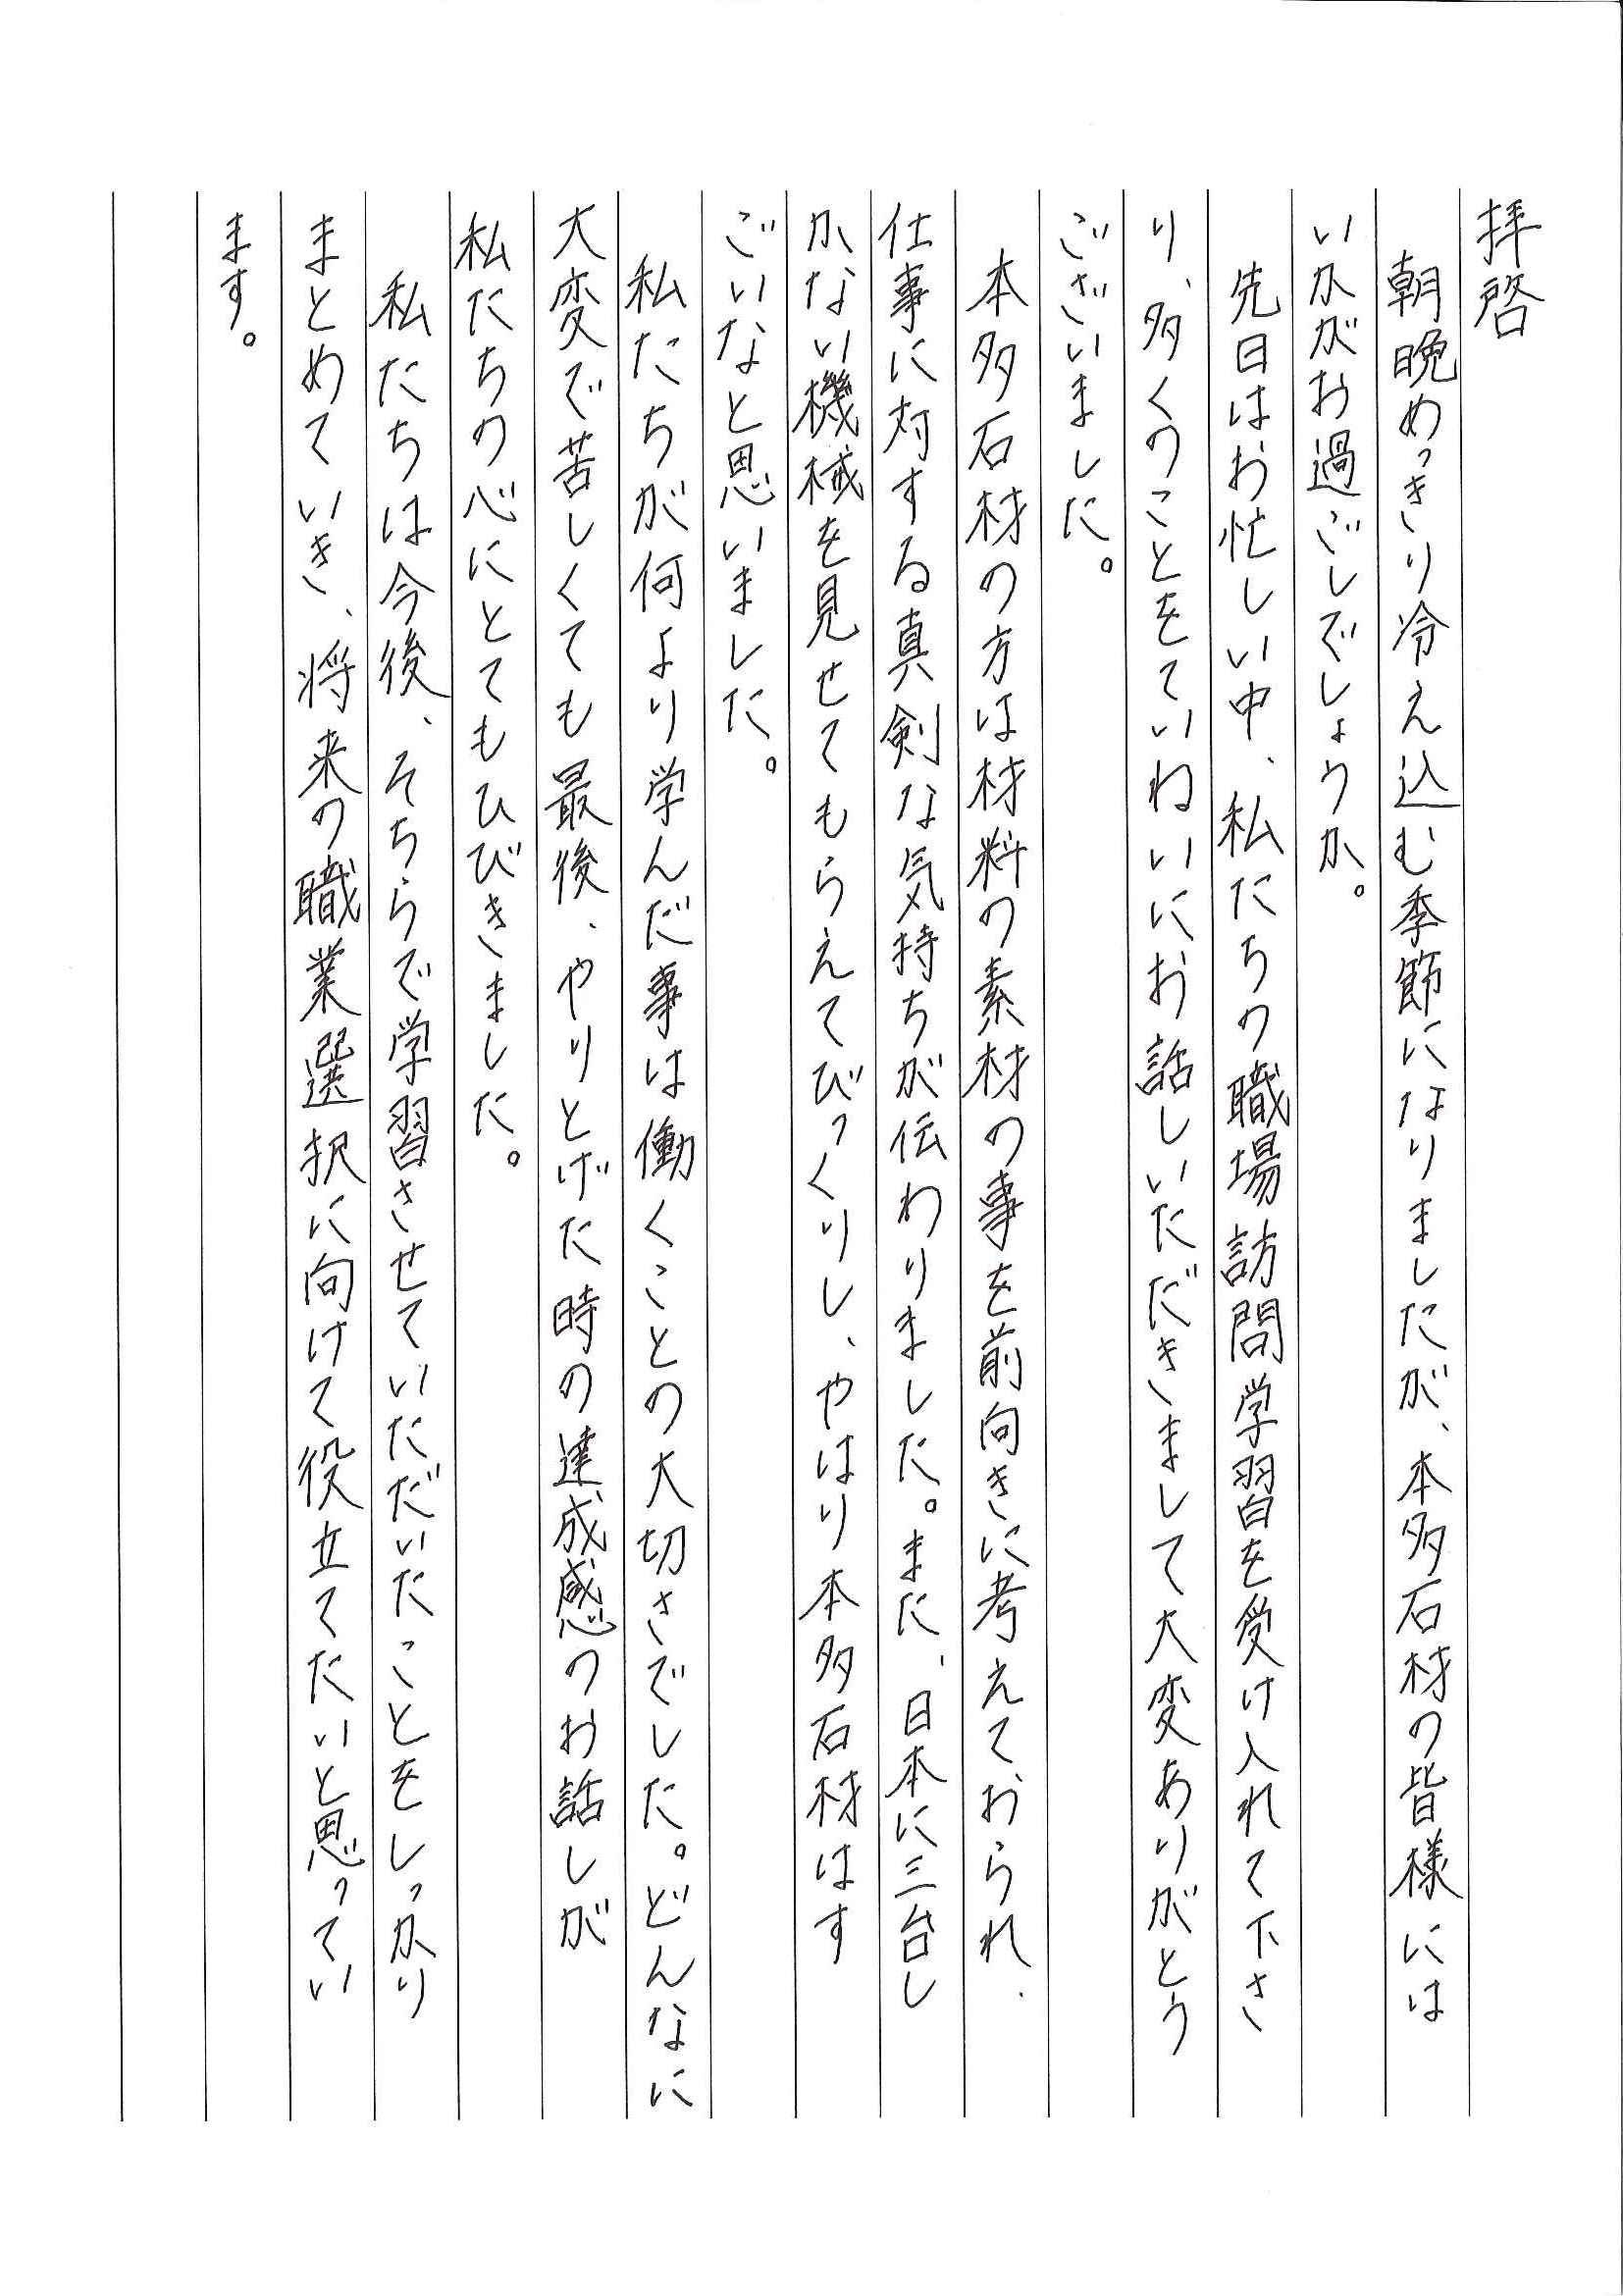 拝啓
朝晩めっきり冷え込む季節になりましたが、本多石材の皆様には
いかがお過ごしでしょうか。
先日はお忙しい中、私たちの職場訪問学習を受け入れて下さ
り、多くのことをていねいにお話しいただきまして大変ありがとう
ございました。
本多石材の方は材料の素材の事を前向きに考えておられ、
仕事に対する真剣な気持ちが伝わりました。また、日本に三台し
かない機械を見せてもらえてびっくりし、やはり本多石材はす
ごいなと思いました。
私たちが何より学んだ事は働くことの大切さでした。どんなに
大変で苦しくても最後、やりとげた時の達成感のお話しが
私たちの心にとてもひびきました。
私たちは今後、そちらで学習させていただいたことをしっかり
まとめていき、将来の職業選択に向けて役立てたいと思ってい
ます。